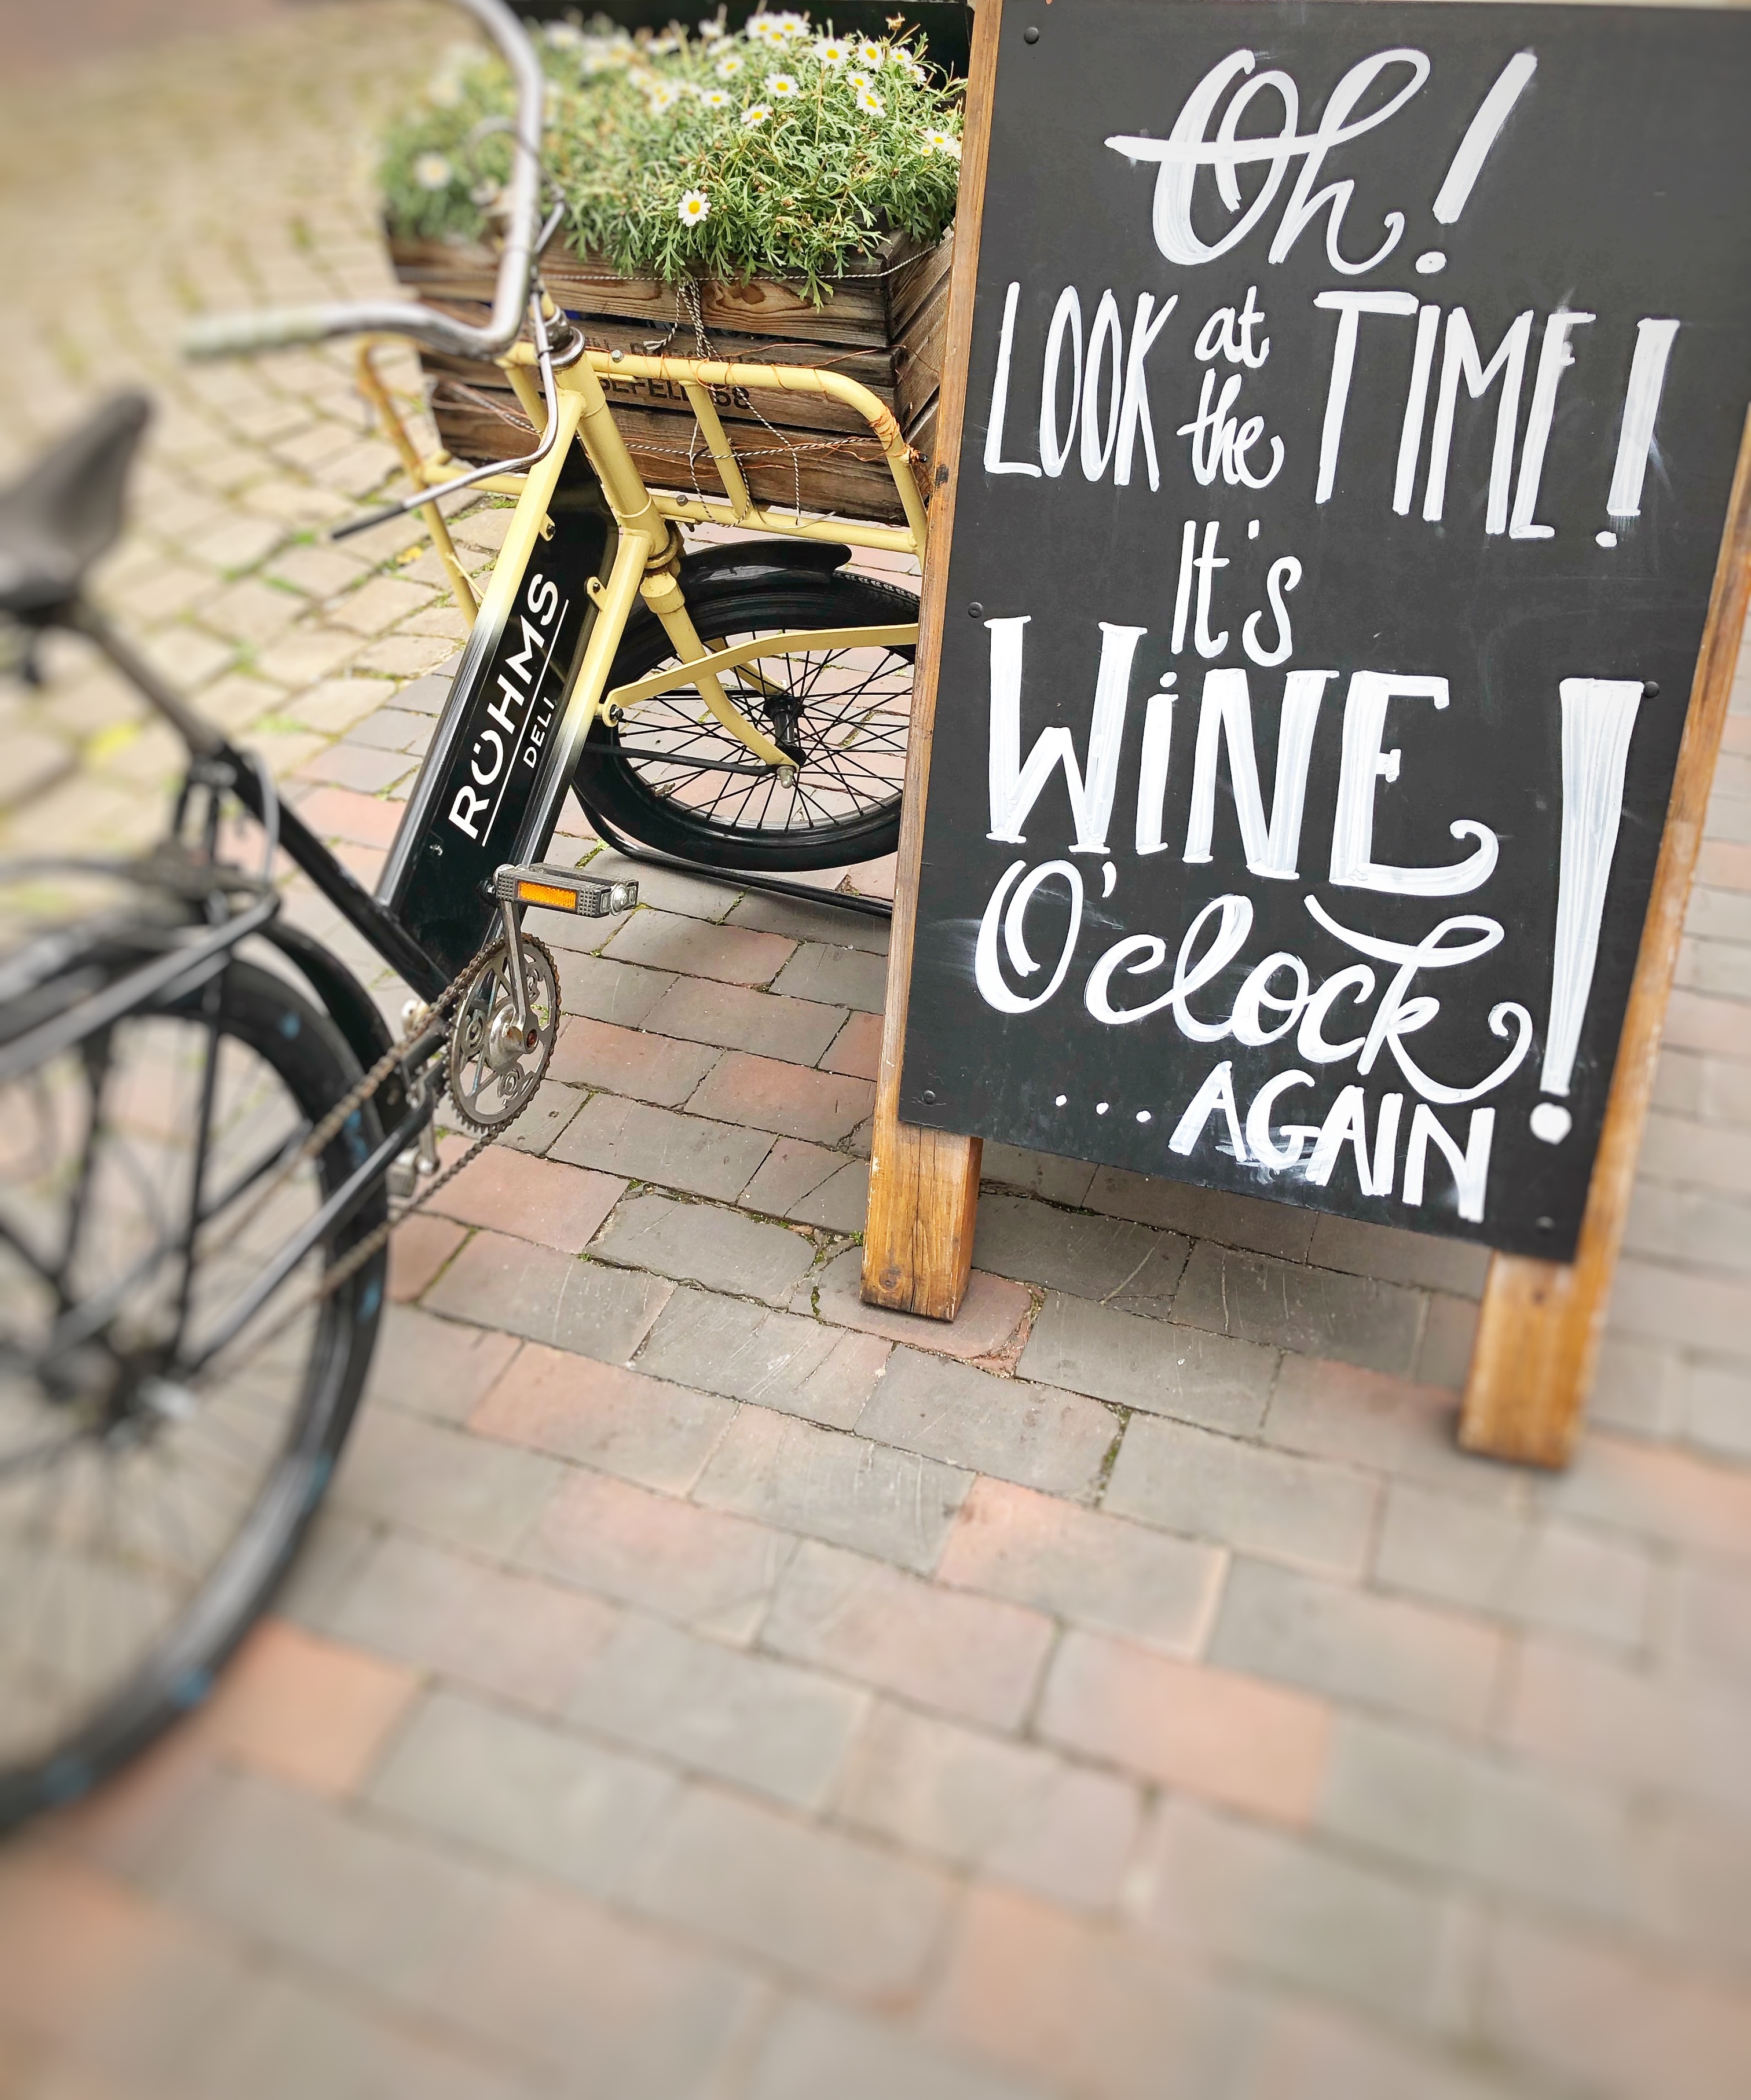 Oh!
LOOK at the TIME!
It's
WiNE
O'clock!
...AGAIN
RÖHMS
DELI